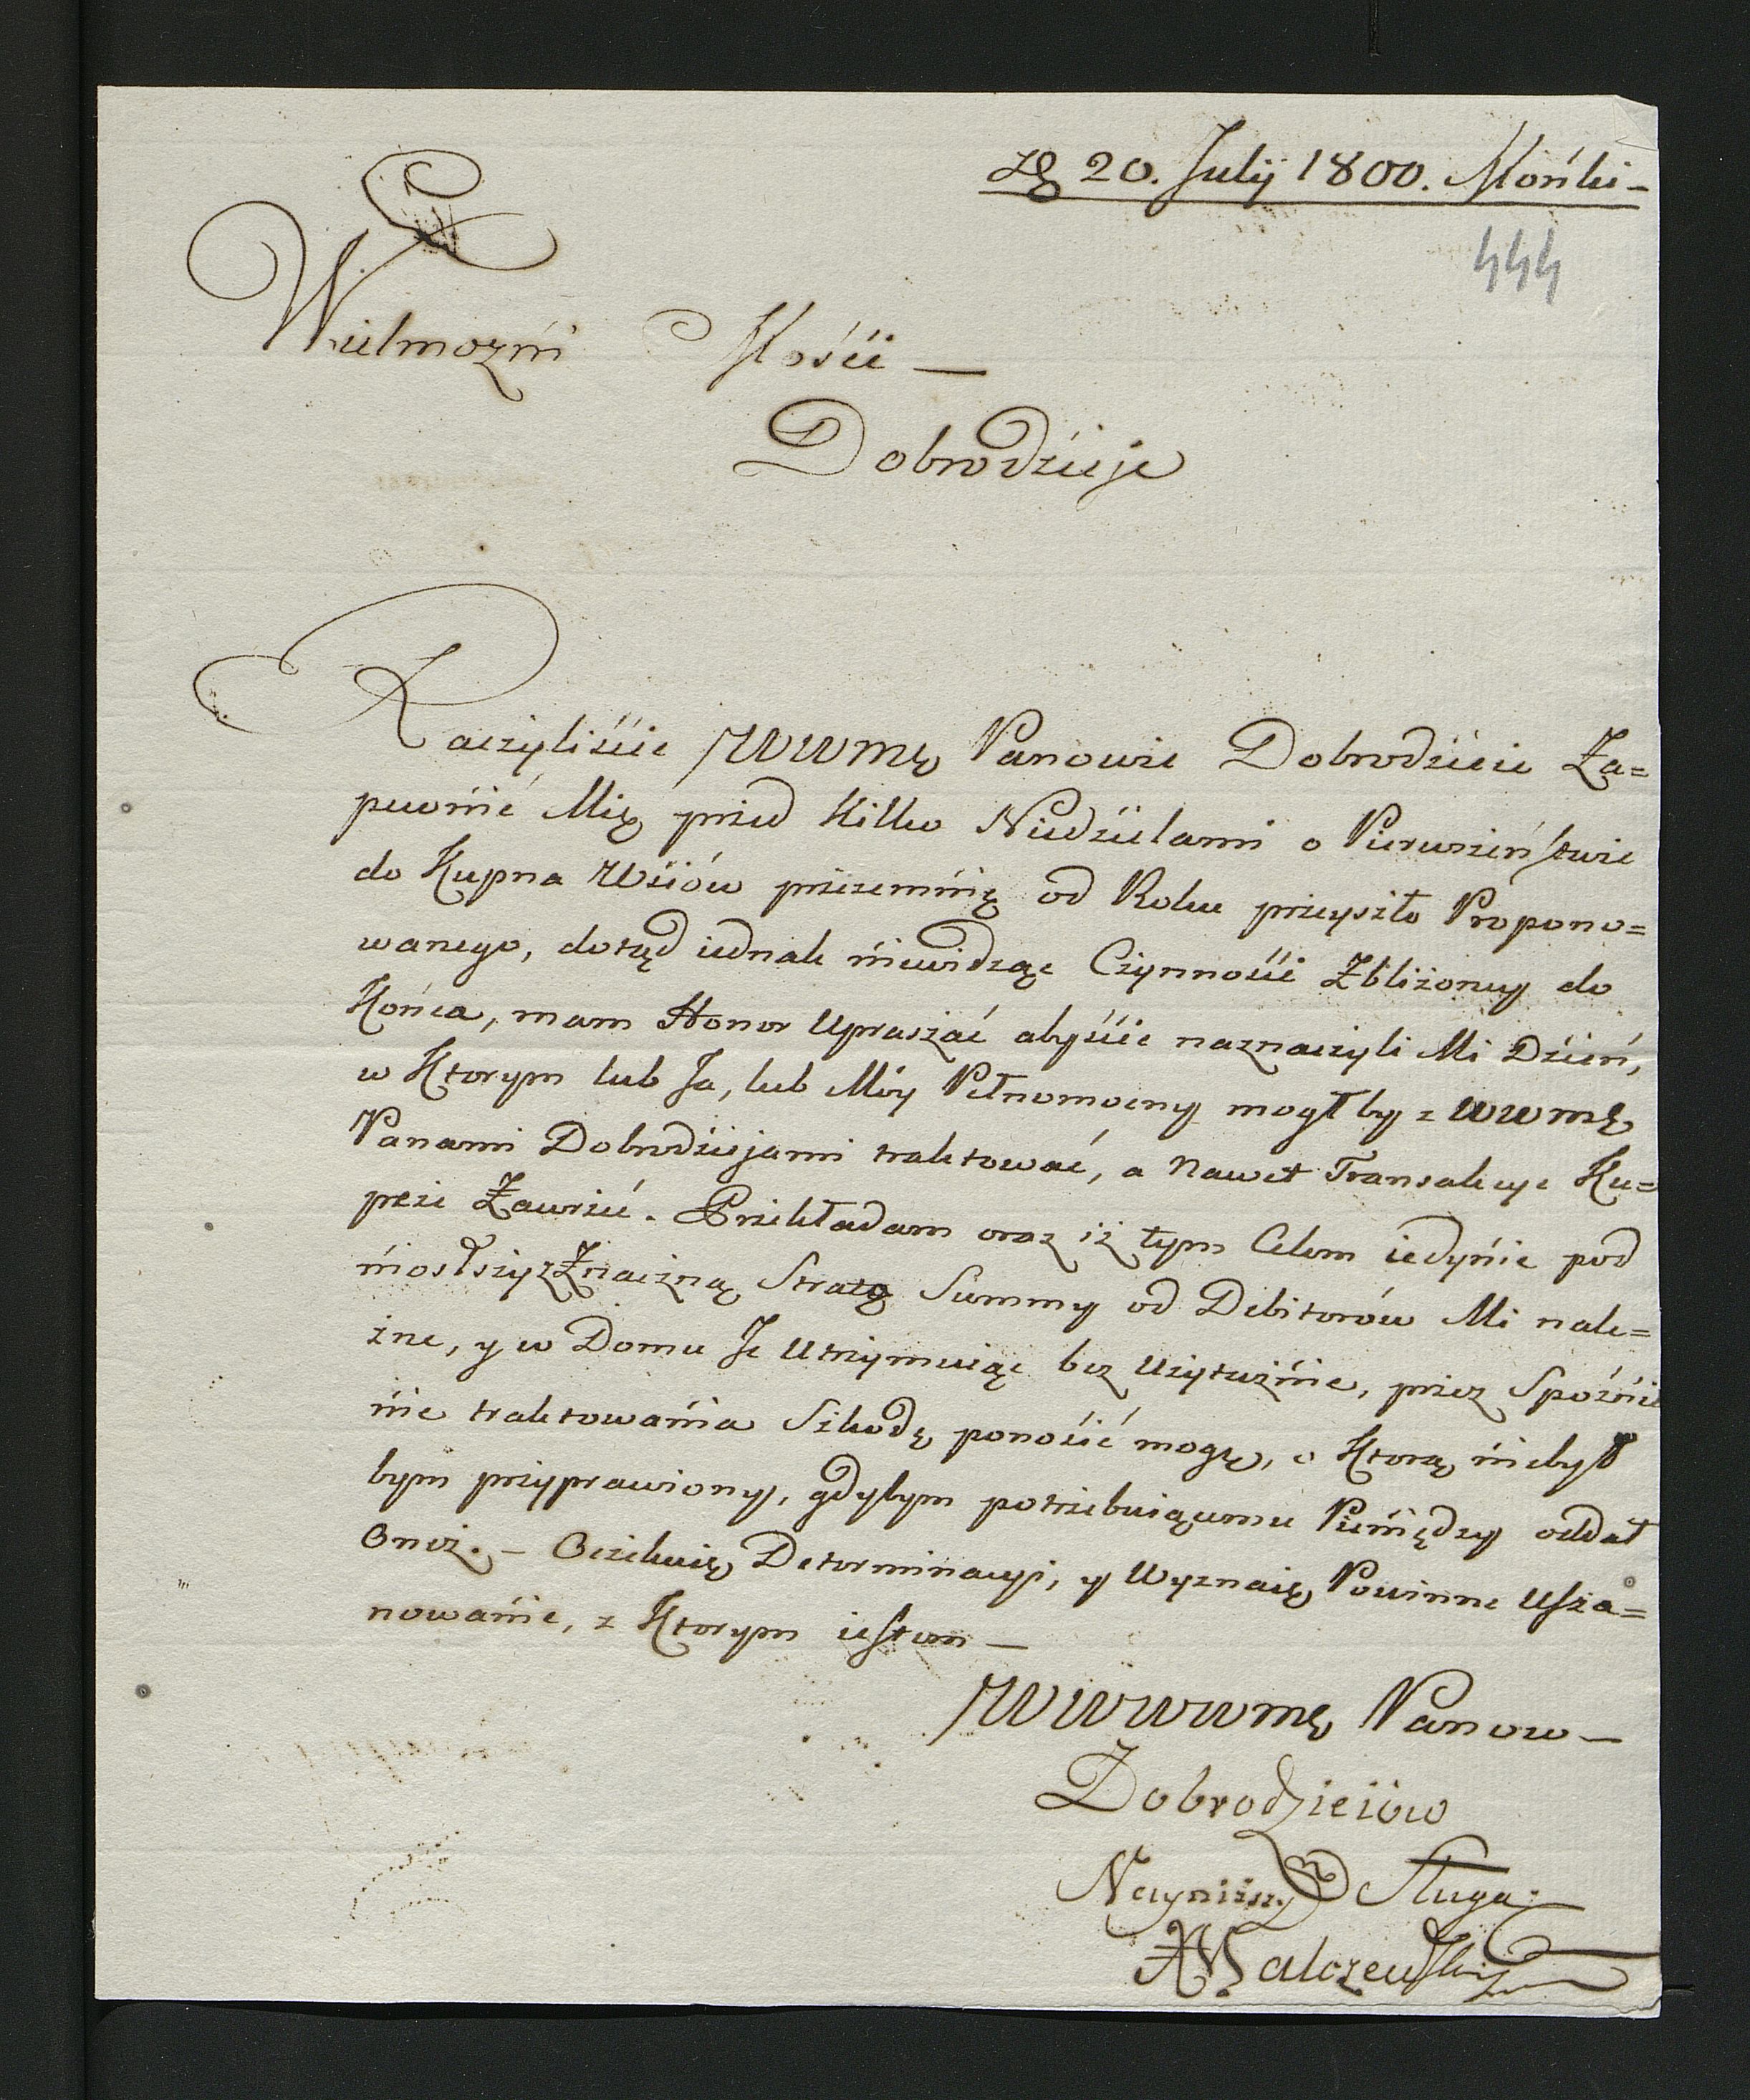 20. Julij 1800. Mońki –
444
Wielmożni Mośćii –
Dobrodzieje
Raczyliśćie JWWMę Panowie Dobrodzieie Za=
pewnić Mię przed Kilku Niedzielami o Pierwszeństwie
do Kupna Wśiów przezemnię od Roku przeyszło Propono=
wanego, dotąd iednak niewidząc Czynnośći Zbliżoney do
Końca, mam Honor Upraszać abyśćie naznaczyli Mi Dźień,
w Ktorym lub Ja, lub Móy Pełnomocny mogłby z WWMę
Panami Dobrodziejami traktować, a Nawet Transakcye Ku=
peże Zawrzeć. Przekładam oraz iż tym Celem iedynie pod
niosłszy z Znaczną Stratą Summy od Debitorów Mi nale=
żne, y w Domu Je Utrzymuiąc bez Użytużnie, przez Spóźnie
nie traktowania Szkodę ponośić mogę, o Ktorą niebył
bym przyprawiony, gdybym potrzebuiącemu Pieniędzy oddał
Oneż. – Oczekuię Determinacyi, y Wyznaię Powinne Usza=
nowanie, z Ktorym iestem –
JWWWWMę Panow –
Dobrodzieiów
Nayniższy Sługa
Walczewski